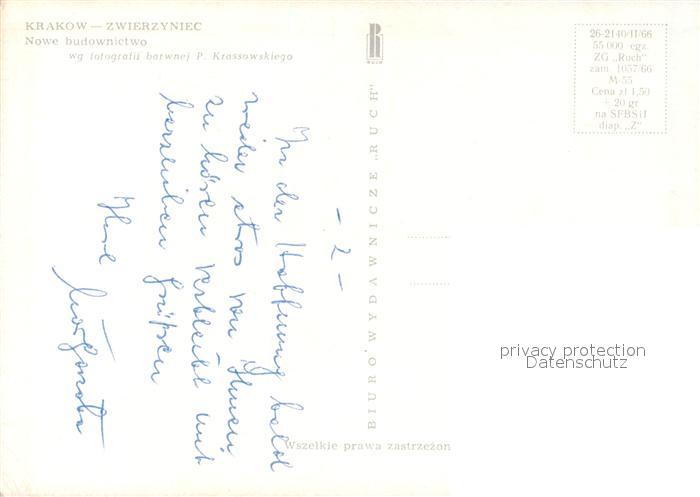 KRAKOW — ZWIERZYNIEC
Nowe budownictwo
wg fotografii barwnej P. Krassowskiego
RUCH
26-2140/II/66
55 000 egz.
ZG „Ruch"
zam. 1057/66
M-55
Cena zł 1,50
+ 20 gr
na SFBSiI
diap. „Z"
BIURO WYDAWNICZE „RUCH"
- 2 -
In der Hoffnung bald
wieder etwas von Ihnen
zu hören verbleibe mit
herzlichen Grüßen
Ihre
Małgorzata
Wszelkie prawa zastrzeżon
privacy protection
Datenschutz